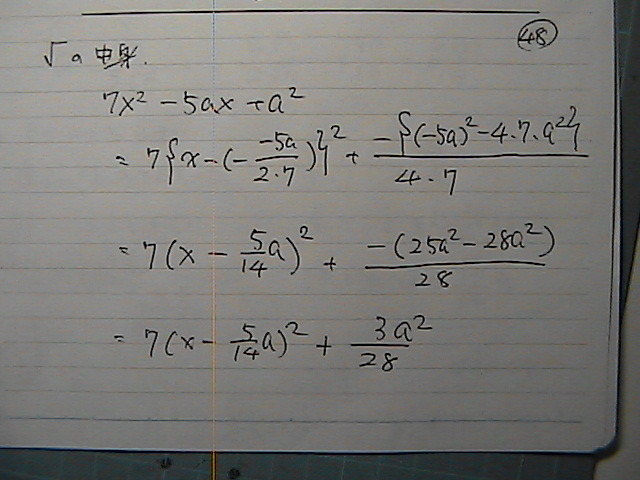 48
√の中身.
7x² - 5ax + a²
= 7{x - (- -5a/2·7)}² + -{(-5a)² - 4·7·a²}/4·7
= 7(x - 5/14 a)² + -(25a² - 28a²)/28
= 7(x - 5/14 a)² + 3a²/28